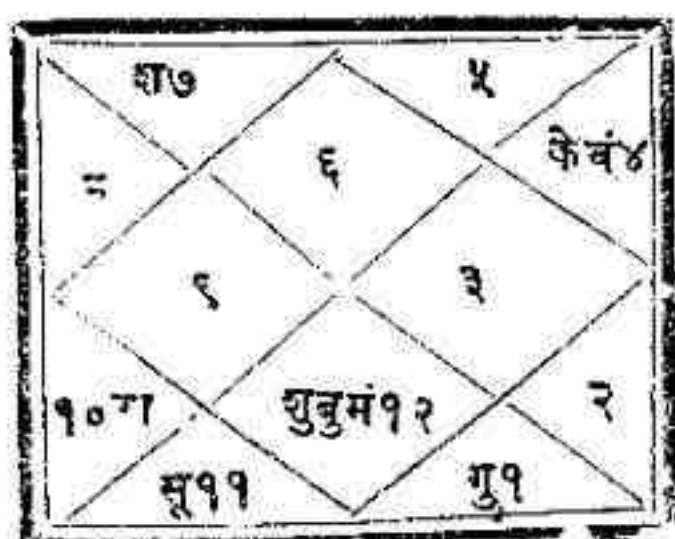 श७ ५
६ के चं४
९ ३
शुबुमं१२ २
सू११ गु१